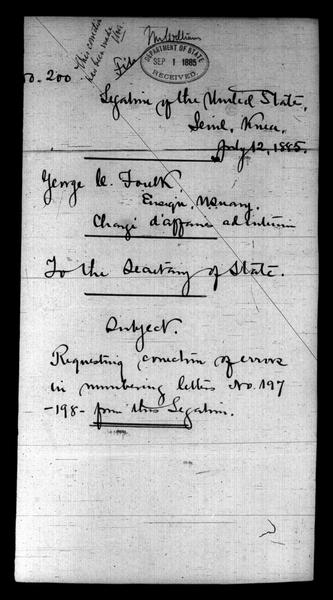 This correction
has been made
File
McWilliams
DEPARTMENT OF STATE
SEP 1 1885
RECEIVED.
o. 200
Legation of the United States,
Seoul, Korea,
July 12, 1885.
George C. Foulk.
Ensign, U.S. Navy.
Chargé d'affaires ad interim
To the Secretary of State.
Subject.
Requesting correction of errors
in numbering letters No. 197
-198- from this Legation.